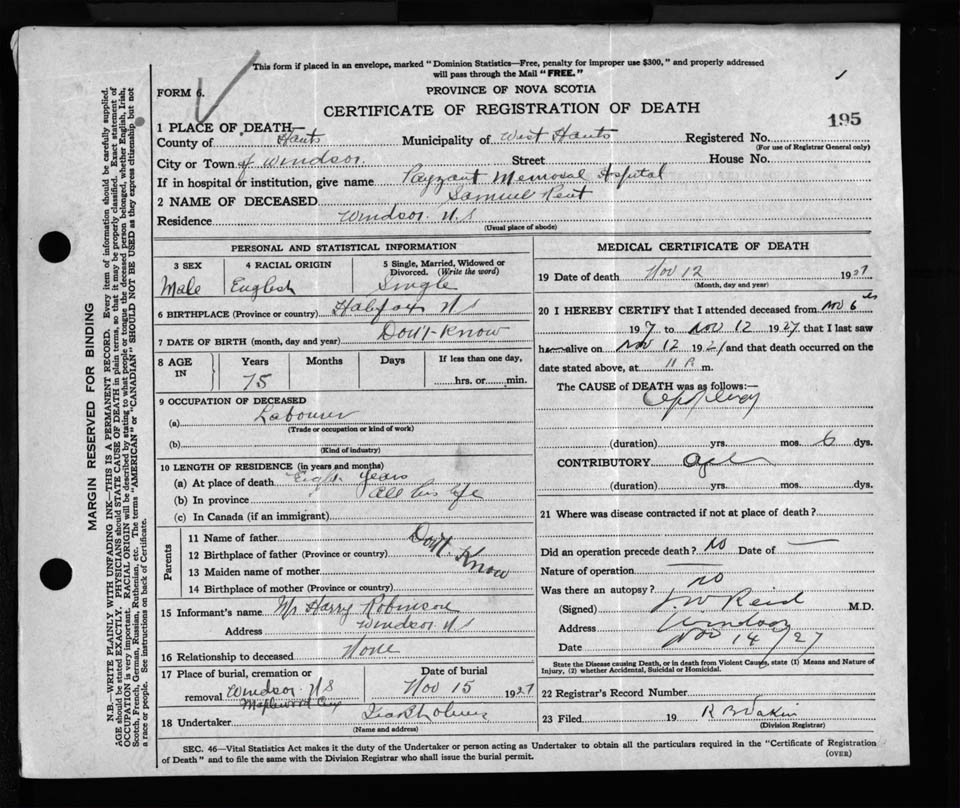 This form if placed in an envelope, marked "Dominion Statistics—Free, penalty for improper use $300," and properly addressed
will pass through the Mail "FREE."
FORM 6.
PROVINCE OF NOVA SCOTIA
CERTIFICATE OF REGISTRATION OF DEATH
195
1 PLACE OF DEATH—
County of Hants Municipality of West Hants Registered No.
(For use of Registrar General only)
City or Town of Windsor Street House No.
If in hospital or institution, give name Payzant Memorial Hospital
2 NAME OF DECEASED Samuel Kent
Residence Windsor N S
(Usual place of abode)
PERSONAL AND STATISTICAL INFORMATION
3 SEX
Male
4 RACIAL ORIGIN
English
5 Single, Married, Widowed or
Divorced. (Write the word)
Single
6 BIRTHPLACE (Province or country) Halifax N S
7 DATE OF BIRTH (month, day and year) Don't Know
8 AGE
IN
Years
75
Months
Days
If less than one day,
hrs. or min.
9 OCCUPATION OF DECEASED
(a) Labourer
(Trade or occupation or kind of work)
(b)
(Kind of industry)
10 LENGTH OF RESIDENCE (in years and months)
(a) At place of death Eight years
(b) In province All his life
(c) In Canada (if an immigrant)
Parents
11 Name of father Don't Know
12 Birthplace of father (Province or country)
13 Maiden name of mother
14 Birthplace of mother (Province or country)
15 Informant's name Mr Harry Robinson
Address Windsor N S
16 Relationship to deceased None
17 Place of burial, cremation or
removal Windsor N S
Maplewood Cem
Date of burial
Nov 15 1927
18 Undertaker
(Name and address)
MEDICAL CERTIFICATE OF DEATH
19 Date of death Nov 12 1927
(Month, day and year)
20 I HEREBY CERTIFY that I attended deceased from Nov 6th
1927 to Nov 12 1927 that I last saw
h alive on Nov 12 1927 and that death occurred on the
date stated above, at 11 P. m.
The CAUSE of DEATH was as follows:—
(duration) yrs. mos. 6 dys.
CONTRIBUTORY
(duration) yrs. mos. dys.
21 Where was disease contracted if not at place of death?
Did an operation precede death? No Date of —
Nature of operation —
Was there an autopsy? No
(Signed) J. W. Reid M.D.
Address Windsor
Date Nov 14/27
State the Disease causing Death, or in death from Violent Causes, state (1) Means and Nature of
Injury, (2) whether Accidental, Suicidal or Homicidal.
22 Registrar's Record Number
23 Filed 19
(Division Registrar)
SEC. 46—Vital Statistics Act makes it the duty of the Undertaker or person acting as Undertaker to obtain all the particulars required in the "Certificate of Registration
of Death" and to file the same with the Division Registrar who shall issue the burial permit.
(OVER)
MARGIN RESERVED FOR BINDING
N.B.—WRITE PLAINLY WITH UNFADING INK—THIS IS A PERMANENT RECORD. Every item of information should be carefully supplied.
AGE should be stated EXACTLY. PHYSICIANS should STATE CAUSE OF DEATH in plain terms, so that it may be properly classified. Exact statement of
OCCUPATION is very important. RACIAL ORIGIN will be described by stating to what people or tongue the deceased person belonged, whether English, Irish,
Scotch, French, German, Russian, Ruthenian, etc. The terms "AMERICAN" or "CANADIAN" SHOULD NOT BE USED as they express citizenship but not
a race or people. See instructions on back of Certificate.